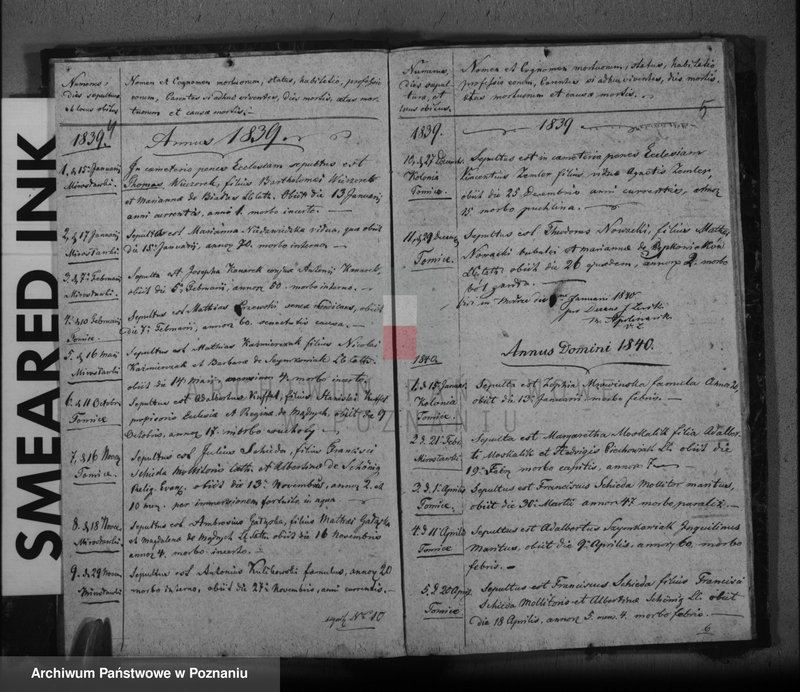 SMEARED INK
Numerus,
dies sepulturae
et locus obitus
Nomen et Cognomen mortuorum, status, habitatio, professio
eorum, Parentes si adhuc viventes, dies mortis, aetas mor-
tuorum et causa mortis.
1839
Annus 1839.
1, d. 15 Januarii
Mirosławki.
In cameterio penes Ecclesiam sepultus est
Thomas Wieczorek, filius Bartholomei Wieczorek
et Marianna de LL. Cath. Obiit die 13 Januarii
anni currentis, anno 1. morbo incerto.
2, d. 17 Januarii
Mirosławki.
Sepulta est Marianna vidua, quae obiit
die 15 Januarii, annor. 70. morbo interno.
3. d. 7 Februarii
Mirosławki.
Sepulta est Josepha Kanarek conjux Antonii Kanarek,
obiit die 5 Februarii, annor. 60. morbo interno.
4. d. 10 Februarii
Tomice.
Sepultus est Mathias senex mendicans, obiit
die 7 Februarii, annor. 60. senectutis causa.
5. d. 16 Maii
Mirosławki
Sepultus est Mathias Kazmierczak filius Nicolai
Kazmierczak et Barbara de Szymkowiak LL. Cath.
obiit die 14 Maii mensium 4. morbo incerto.
6. d. 11 Octobris
Tomice
Sepultus est Adalbertus filius Stanislai
et Regina de obiit die 9
Octobris, annor. 17. morbo
7. d. 16 Novembris
Tomice.
Sepultus est Julius Schieda, filius Francisci
Schieda Mollitoris Cath. et Albertinae de Schönig
Relig. Evang. obiit die 13 Novembris, annor. 2. et
10 mens. per immersionem fortuito in aqua
8. d. 18 Nove.
Mirosławki.
Sepultus est Ambrosius filius Mathei
et Magdalena de LL. Cath. obiit die 16 Novembris
annor. 4. morbo incerto.
9. d. 29 Novem
Mirosławki
Sepultus est Antonius Kulikowski famulus, annor. 20
morbo interno, obiit die 27 Novembris, anni currentis.
N. 10
Numerus,
dies sepul-
turae, et
locus obitus.
Nomen et Cognomen mortuorum, status, habitatio
professio eorum, Parentes si adhuc viventes, dies mortis
aetas mortuorum et causa mortis.
5
1839.
1839
10, d. 27 Decemb.
Kolonia
Tomice.
Sepultus est in cameteria penes Ecclesiam
Vincentius Zemler filius vidua Agnetis Zemler,
obiit die 25 Decembris anni currentis, annor.
15 morbo puchlina.
11, d. 29 Decemb
Tomice.
Sepultus est Theodorus Nowacki, filius Mathei
Nowacki bubulci et Mariannae de
LL. Cath. obiit die 26 ejusdem, annor. 2. morbo
ból gardła.
Januarii 1840
per Decanum
1840
Annus Domini 1840.
1. d. 15 Januar.
Kolonia
Tomice.
Sepulta est Zophia Mrowinska famula Anno 20,
obiit die 13 Januarii morbo febris.
2 d. 21 Febr.
Mirosławki.
Sepulta est Margaretha Moskalik filia Adalber-
ti Moskalik et Hedvigis Piechowiak LL. obiit die
19 Febr. morbo capitis, annor. 7
3. d. 1 Aprilis
Tomice.
Sepultus est Franciscus Schieda Mollitor maritus,
obiit die 30 Martii annor 47 morbo paraliż.
4. d. 11 Aprilis
Tomice
Sepultus est Adalbertus Szymkowiak Inquilinus
Maritus, obiit die 9 Aprilis, annor. 60, morbo
febris.
5. d. 20 April.
Tomice
Sepultus est Franciscus Schieda filius Francisci
Schieda Mollitoris et Albertinae Schönig LL. obiit
die 18 Aprilis, annor. 5. mens. 4. morbo febris.
6
POZNANIU
Archiwum Państwowe w Poznaniu